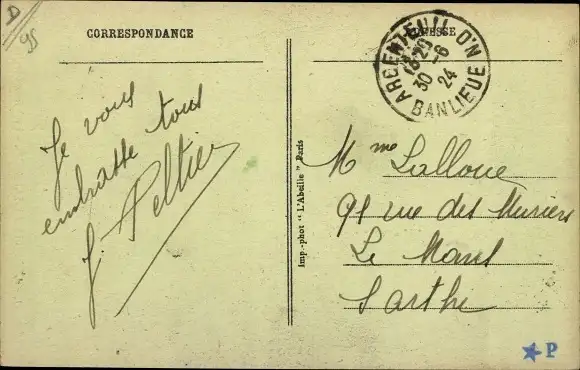 D
95
CORRESPONDANCE
Je vous
embrasse tous
J. Peltier
Imp.-phot "L'Abeille" Paris
ADRESSE
ARGENTEUIL
BANLIEUE
18·20
30 -6
24
Mme Lalloue
91 rue des
Le Mans
Sarthe
P